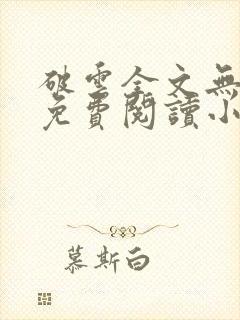 破雲全文無
免費閱讀小
慕斯白